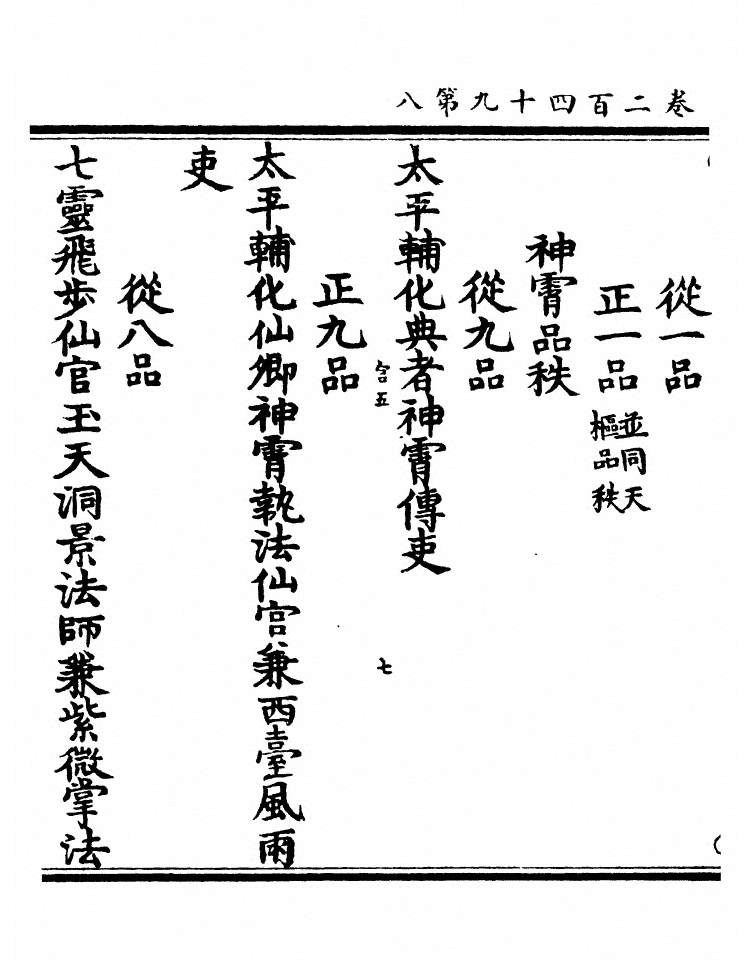 卷二百四十九第八
從一品
正一品 並同天
樞品秩
神霄品秩
從九品
太平輔化典者神霄傳吏
舍五
七
正九品
太平輔化仙卿神霄執法仙官兼西臺風雨
吏
從八品
七靈飛步仙官玉天洞景法師兼紫微掌法